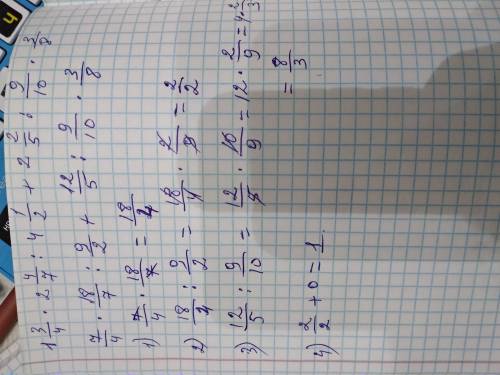 1 3/4 · 2 4/7 : 4 1/2 + 2 2/5 : 9/10 · 3/8
7/4 · 18/7 : 9/2 + 12/5 : 9/10 · 3/8
1) 7/4 · 18/7 = 18/4
2) 18/4 : 9/2 = 18/4 · 2/9 = 2/2
3) 12/5 : 9/10 = 12/5 · 10/9 = 12 · 2/9 = 4 · 2/3
= 8/3
4) 2/2 + 0 = 1